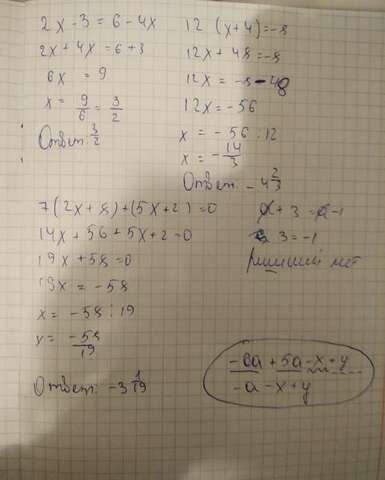 2x - 3 = 6 - 4x
2x + 4x = 6 + 3
6x = 9
x = 9/6 = 3/2
Ответ: 3/2
12 (x+4) = -8
12x + 48 = -8
12x = -8 - 48
12x = -56
x = -56 : 12
x = -14/3
Ответ: -4 2/3
7(2x+8)+(5x+2)=0
14x+56+5x+2=0
19x+58=0
19x = -58
x = -58 : 19
x = -58/19
Ответ: -3 1/19
a + 3 = a - 1
3 = -1
нет
-6a + 5a - x + y
-a - x + y